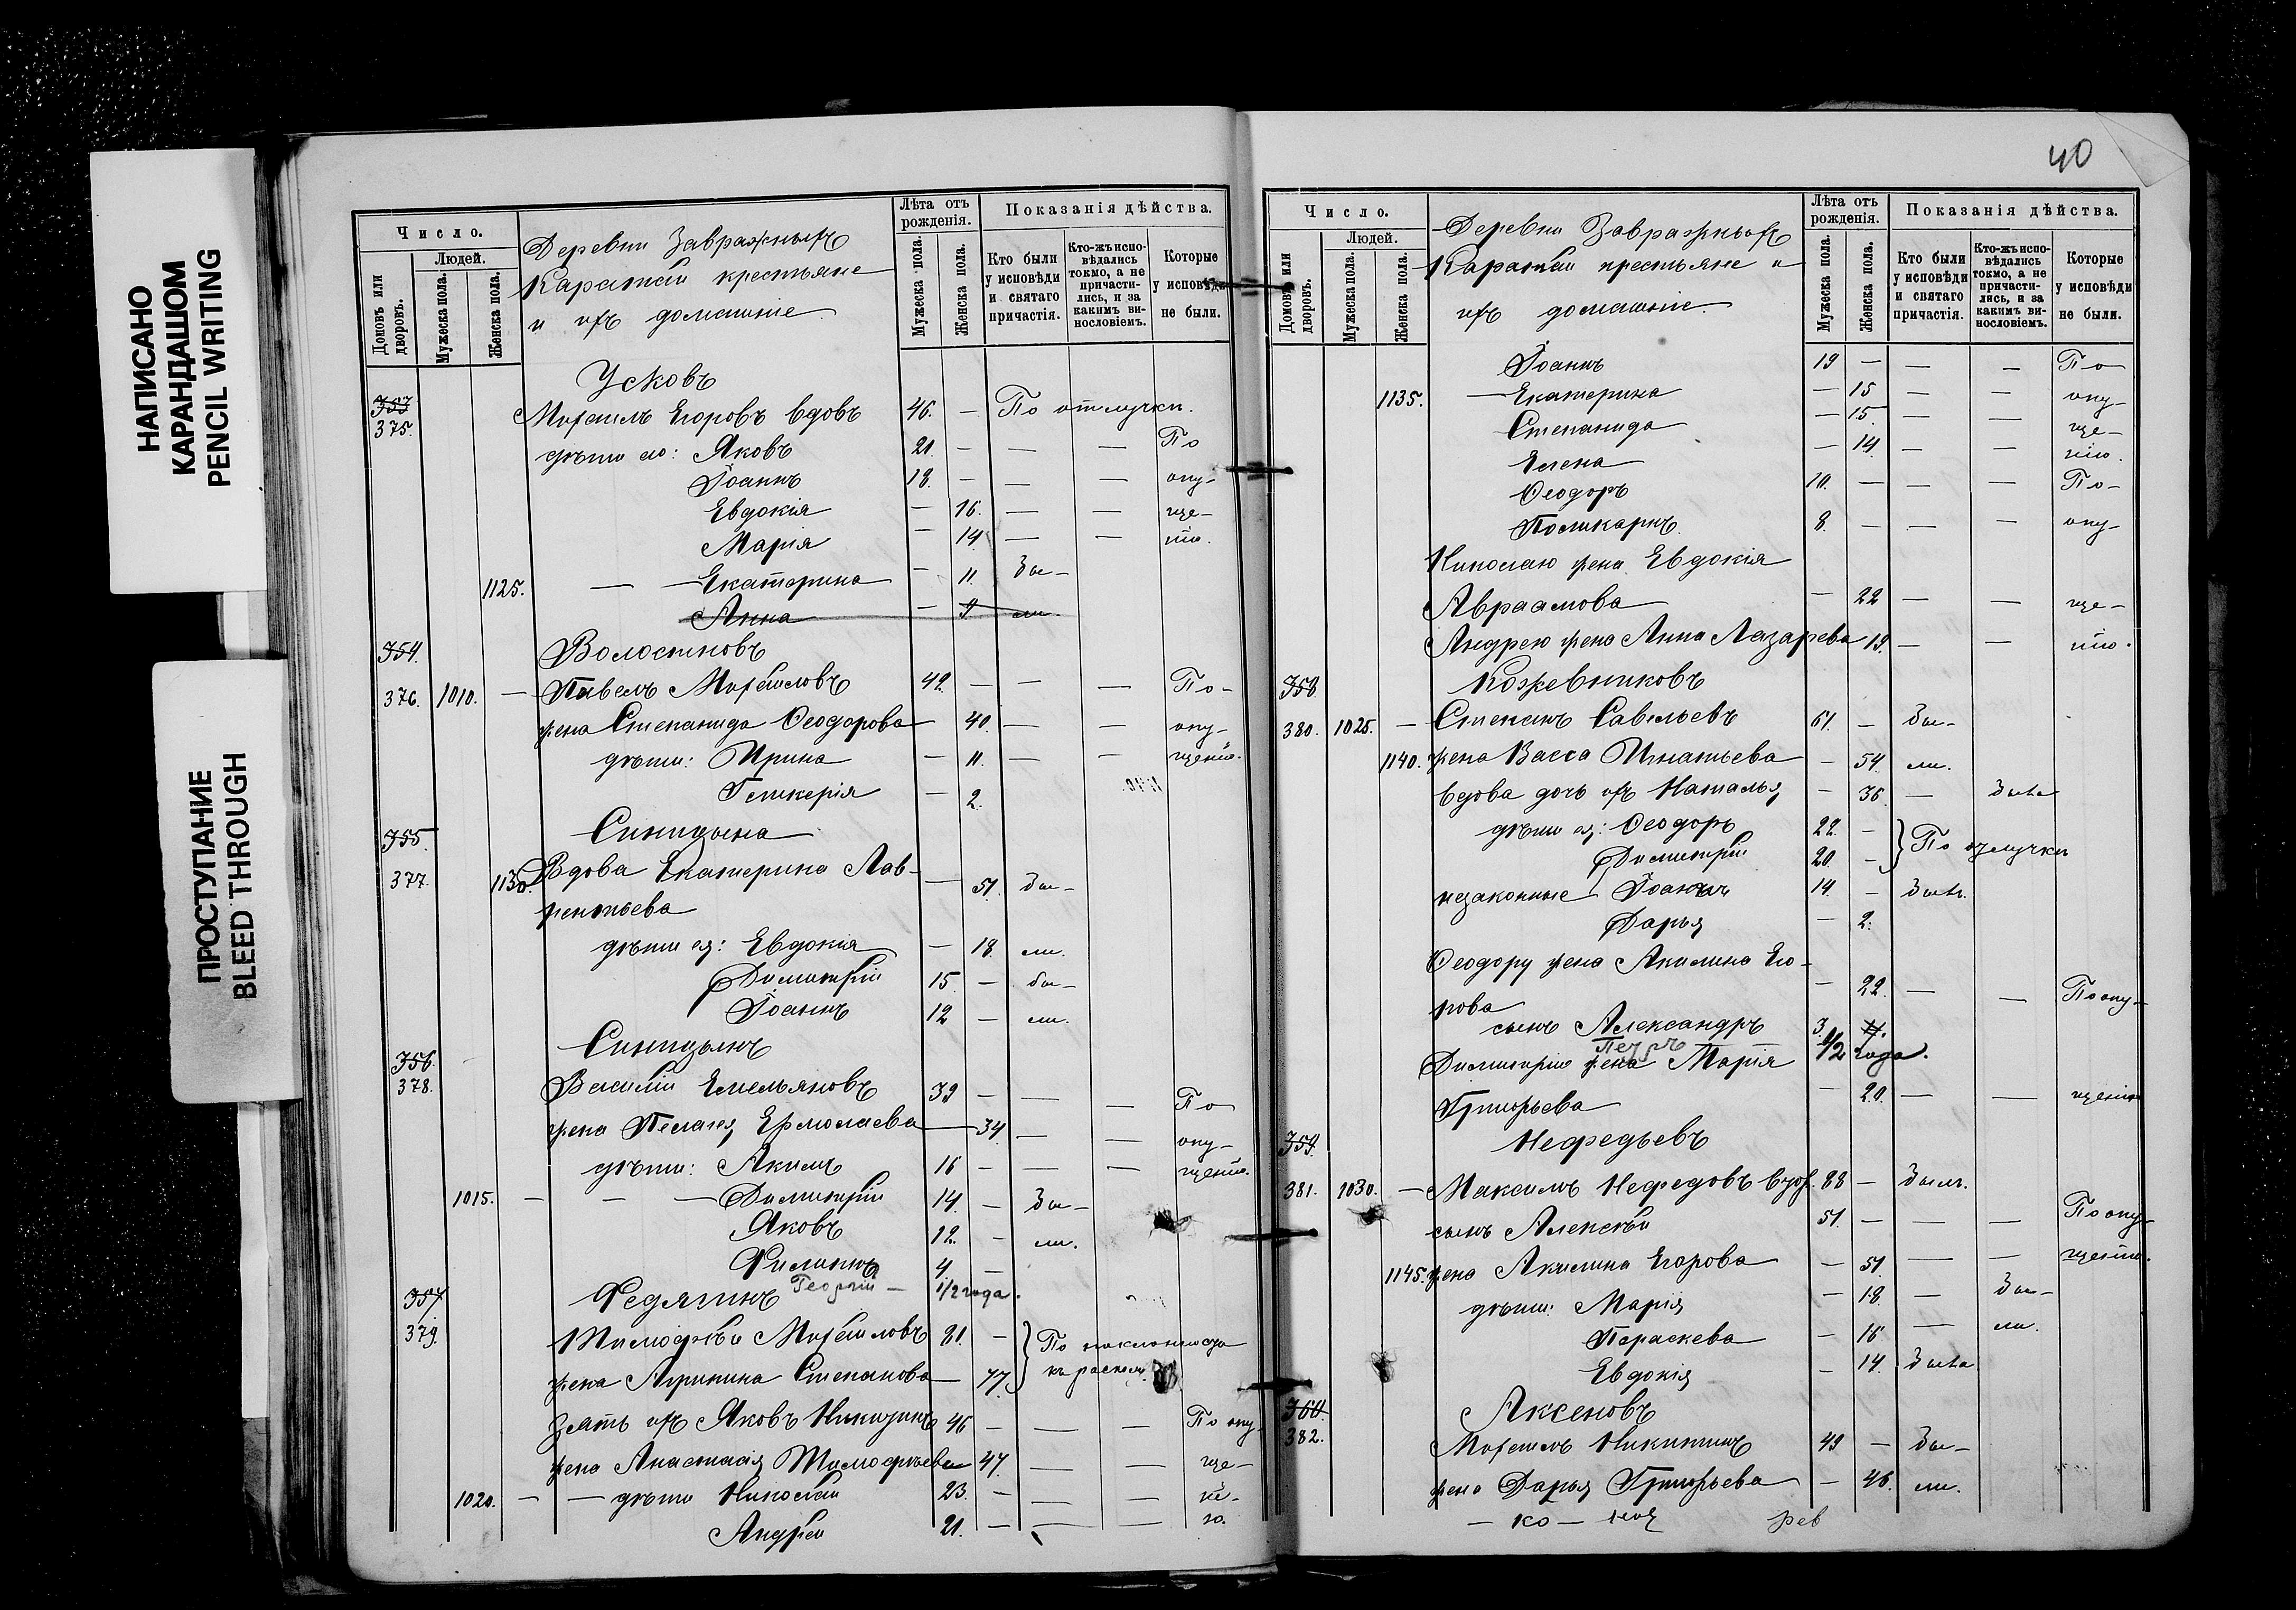 НАПИСАНО
КАРАНДАШОМ
PENCIL WRITING
ПРОСТУПАНИЕ
BLEED THROUGH
Число.
Людей.
Домовъ или дворовъ.
Мужеска пола.
Женска пола.
Деревни Завражныхъ
Каратай крестьяне
и ихъ домашніе.
Лѣта отъ рожденія.
Мужеска пола.
Женска пола.
Показанія дѣйства.
Кто были у исповѣди и святаго причастія.
Кто-жъ исповѣдались токмо, а не причастились, и за какимъ винословіемъ.
Которые у исповѣди не были.
Усковъ
353
375. Михаилъ Егоровъ вдовъ 46. — По отлучки.
дѣти его: Яковъ 21. — — — По
Іоаннъ 18. — — — опу-
Евдокія — 16. — — ще-
Марія — 14. — — нію.
1125. — — Екатерина — 11. Бы-
Анна — 9 ли.
354. Волостновъ
376. 1010. — Павелъ Михайловъ 42. — — — По-
жена Степанида Ѳеодорова 40. — — опу-
дѣти: Ирина — 11. — — щенію.
Гликерія — 2.
355. Синицына
377. 1130. Вдова Екатерина Лав- — 51. Бы-
рентьева
дѣти ея: Евдокія — 18. ли.
Димитрій 15. — бы-
Іоаннъ 12 — ли.
356. Синицынъ
378. Василій Емельяновъ 39 — — — По
жена Пелагея Ермолаева — 34. — — опу-
дѣти: Акимъ 16 — — — щенію.
1015. — — — Димитрій 14. — Бы-
Яковъ 12. — ли.
Филиппъ 4 —
Георгій — 1/2 года.
357 Федягинъ
379. Тимофѣй Михайловъ 81. — По наклонности
жена Агрипина Степанова — 77. къ расколу
Зять ихъ Яковъ Никитинъ 46 — — — По опу-
жена Анастасія Тимофѣева 47. — — ще-
1020. — — дѣти Николай 23. — — — ні-
Андрей 21. — — — ю.
40
Число.
Людей.
Домовъ или дворовъ.
Мужеска пола.
Женска пола.
Деревни Завражныхъ
Каратай крестьяне и
ихъ домашніе.
Лѣта отъ рожденія.
Мужеска пола.
Женска пола.
Показанія дѣйства.
Кто были у исповѣди и святаго причастія.
Кто-жъ исповѣдались токмо, а не причастились, и за какимъ винословіемъ.
Которые у исповѣди не были.
Іоаннъ 19 — — — По
1135. — Екатерина — 15 — — опу-
Степанида — 15. — — ще-
Елена — 14. — — нію.
Ѳеодоръ 10. — — — По-
Поликарпъ 8. — — — опу-
Николаю жена Евдокія
Авраамова — 22 — — ще-
Андрею жена Анна Лазарева 19. — — нію.
358. Кожевниковъ
380. 1025. — Степанъ Савельевъ 61. — Бы-
1140. жена Васса Игнатьева — 54. ли.
вдова дочь ихъ Наталья — 36. — Была
дѣти ея: Ѳеодоръ 22. — По отлучки
Димитрій 20. —
незаконные Іоаннъ 14. — Былъ.
Дарья — 2.
Ѳеодору жена Акилина Его-
рова — 22. — — По опу-
сынъ Александръ 3.
Петръ 1/2 года.
Димитрію жена Марія
Григорьева — 20. — — щенію
359. Нефедьевъ
381. 1030. — Максимъ Нефедовъ вдов. 88 — Былъ.
сынъ Алексѣй 51. — — — По опу-
1145. жена Акилина Егорова — 51. — — щенію.
дѣти: Марія — 18. — Бы-
Параскева — 16 — ли.
Евдокія — 14. Была
360. Аксеновъ
382. Михаилъ Никитинъ 49 — Бы-
жена Дарья Григорьева — 46. ли.
— ко —
рев